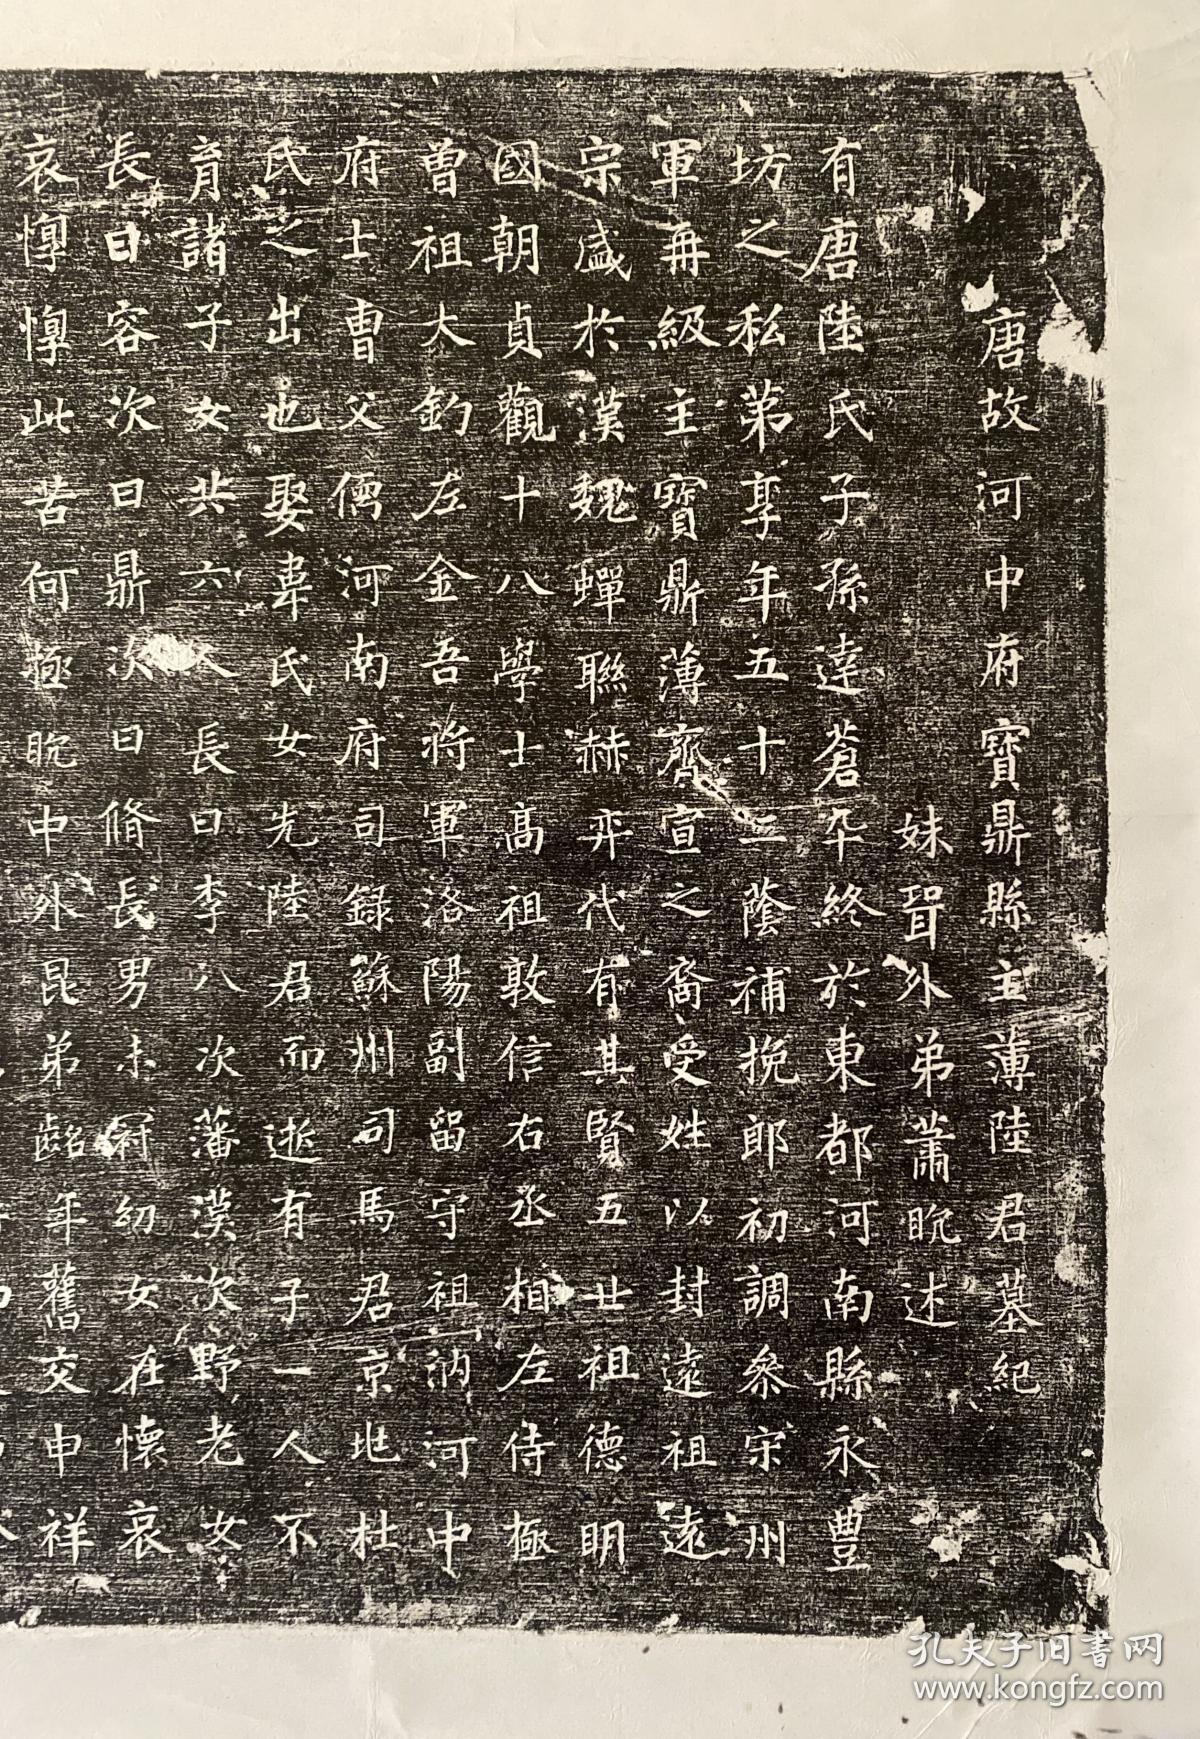 唐故河中府寶鼎縣主薄陸君墓紀
妹聟外弟蕭睨述
有唐陸氏子孫達蒼卒終於東都河南縣永豊
坊之私第享年五十二蔭補挽郎初調叅宋州
軍再級主寶鼎薄齊宣之裔受姓以封遠祖遠
宗盛於漢魏蟬聯赫弈代有其賢五廿祖德明
國朝貞觀十八學士高祖敦信右丞相左侍極
曾祖大鈞左金吾將軍洛陽副留守祖訥河中
府士曹父偁河南府司録蘇州司馬君京兆杜
氏之出也娶韋氏女先陸君而逝有子一人不
育諸子女共六人長曰李八次藩漢次野老女
長曰容次曰鼎次曰脩長男未冠幼女在懷哀
哀惸惸此苦何極睨中外昆弟齠年舊交申祥
孔夫子旧书网
www.kongfz.com